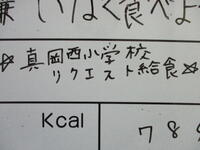 いなく食べよ
☆真岡西小学校
リクエスト給食☆
Kcal
78